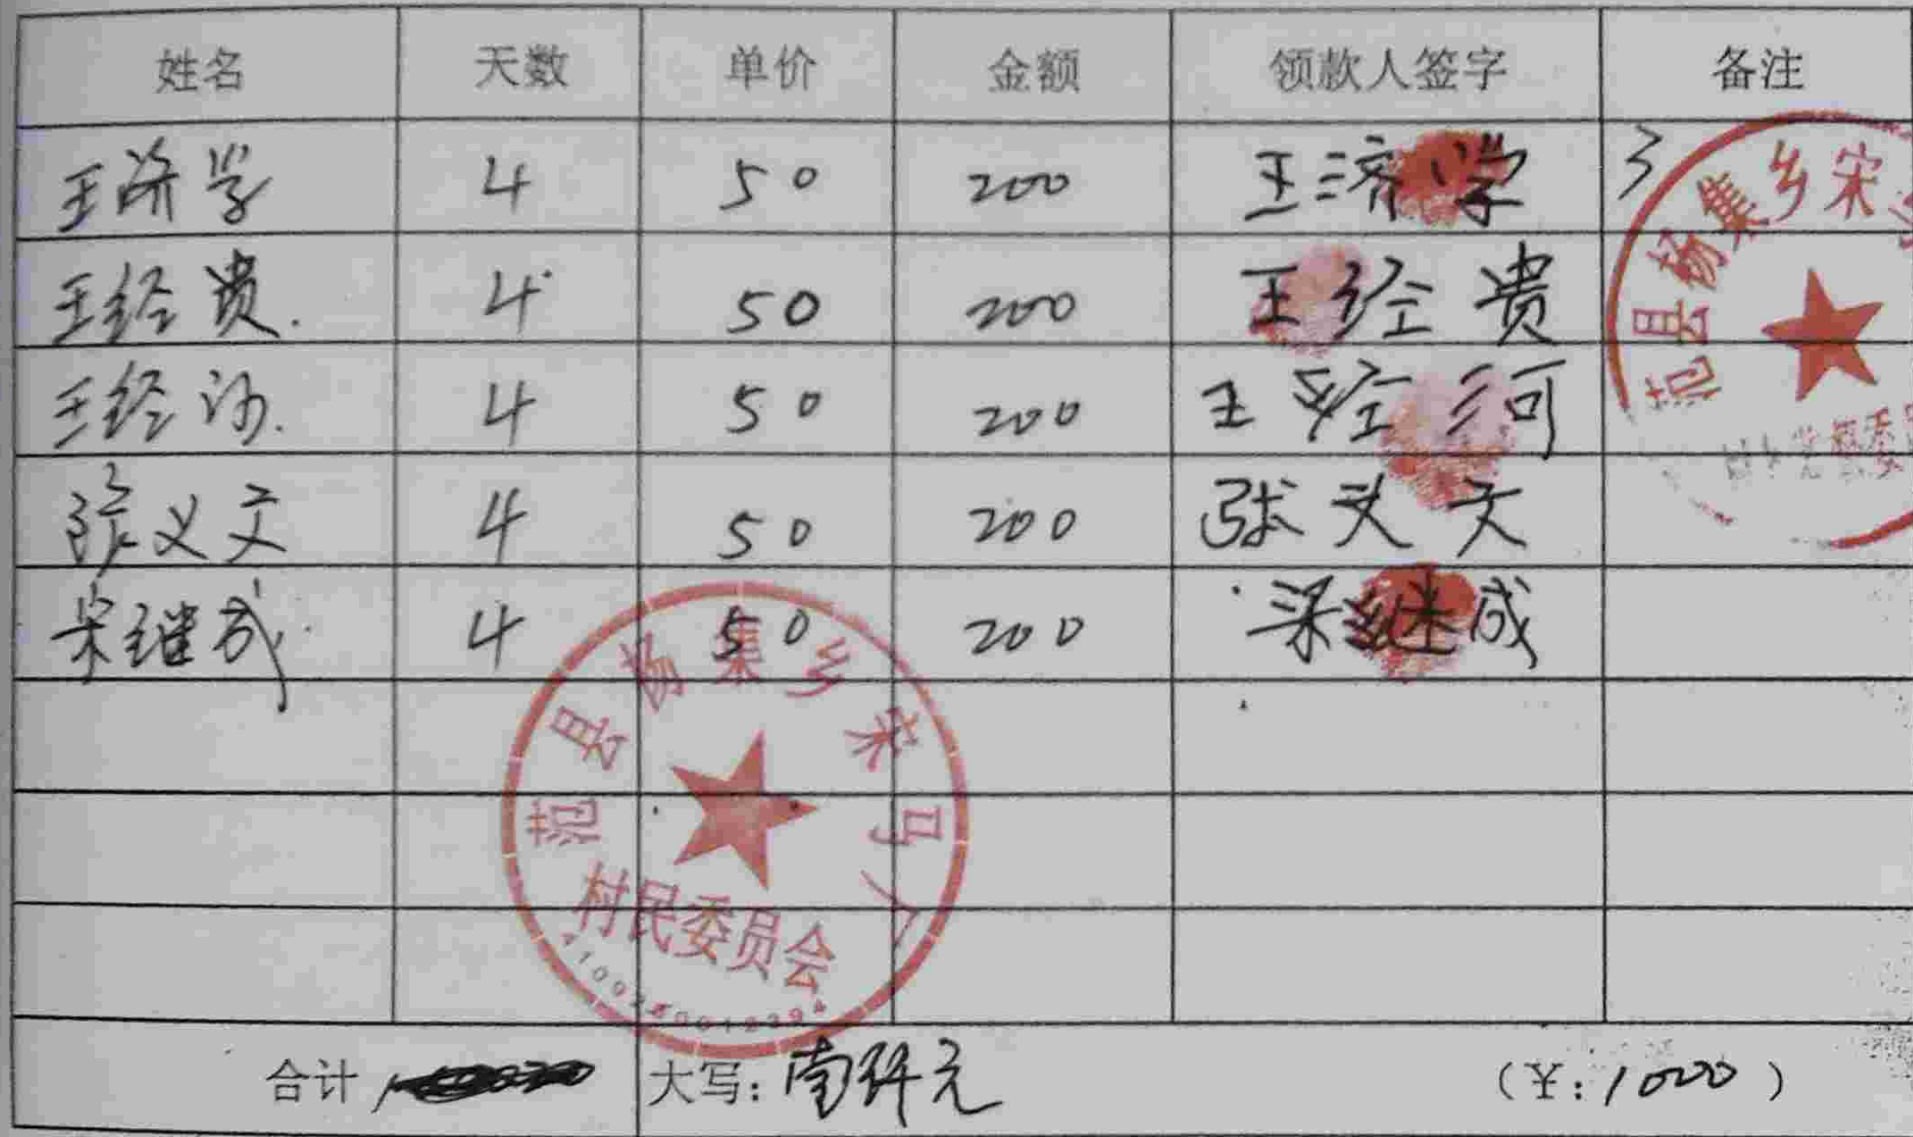 姓名 天数 单价 金额 领款人签字 备注
王济学 4 50 200 王济学 3
王经贵. 4 50 200 王经贵
王经河. 4 50 200 王经河
张义文 4 50 200 张义文
宋继成 4 50 200 宋继成
合计 大写: 壹仟元 (¥: 1000 )
范县杨集乡宋
范县杨集乡宋马
村民委员会